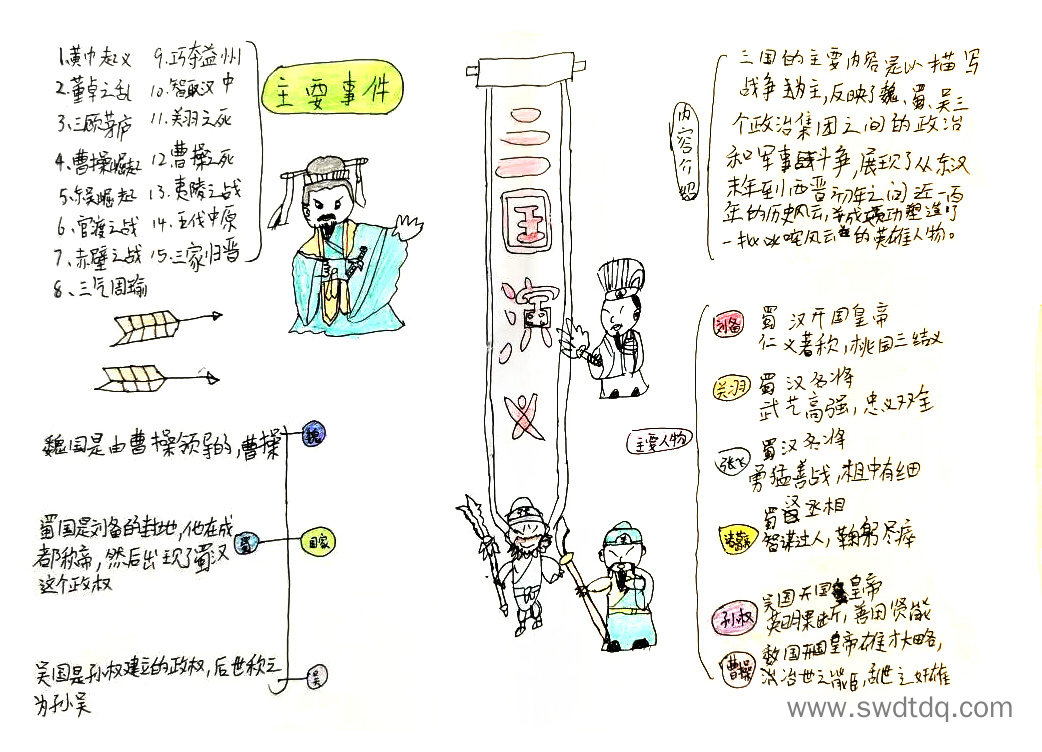 主要事件
1.黄巾起义
2.董卓之乱
3.三顾茅庐
4.曹操崛起
5.东吴崛起
6.官渡之战
7.赤壁之战
8.三气周瑜
9.巧夺益州
10.智取汉中
11.关羽之死
12.曹操之死
13.夷陵之战
14.五伐中原
15.三家归晋
三国演义
内容介绍
三国的主要内容是以描写
战争为主,反映了魏、蜀、吴三
个政治集团之间的政治
和军事战斗争,展现了从东汉
末年到西晋初年之间近一百
年的历史风云,并成功塑造了
一批叱咤风云的英雄人物。
国家
魏
魏国是由曹操领导的,曹操
蜀
蜀国是刘备的封地,他在成
都称帝,然后出现了蜀汉
这个政权
吴
吴国是孙权建立的政权,后世称之
为孙吴
主要人物
刘备
蜀汉开国皇帝
仁义著称,桃园三结义
关羽
蜀汉名将
武艺高强,忠义双全
张飞
蜀汉名将
勇猛善战,粗中有细
诸葛亮
蜀丞相
智谋过人,鞠躬尽瘁
孙权
吴国开国皇帝
英明果断,善用贤能
曹操
国开国皇帝雄才大略,
治世之能臣,乱世之奸雄
www.swdtdq.com